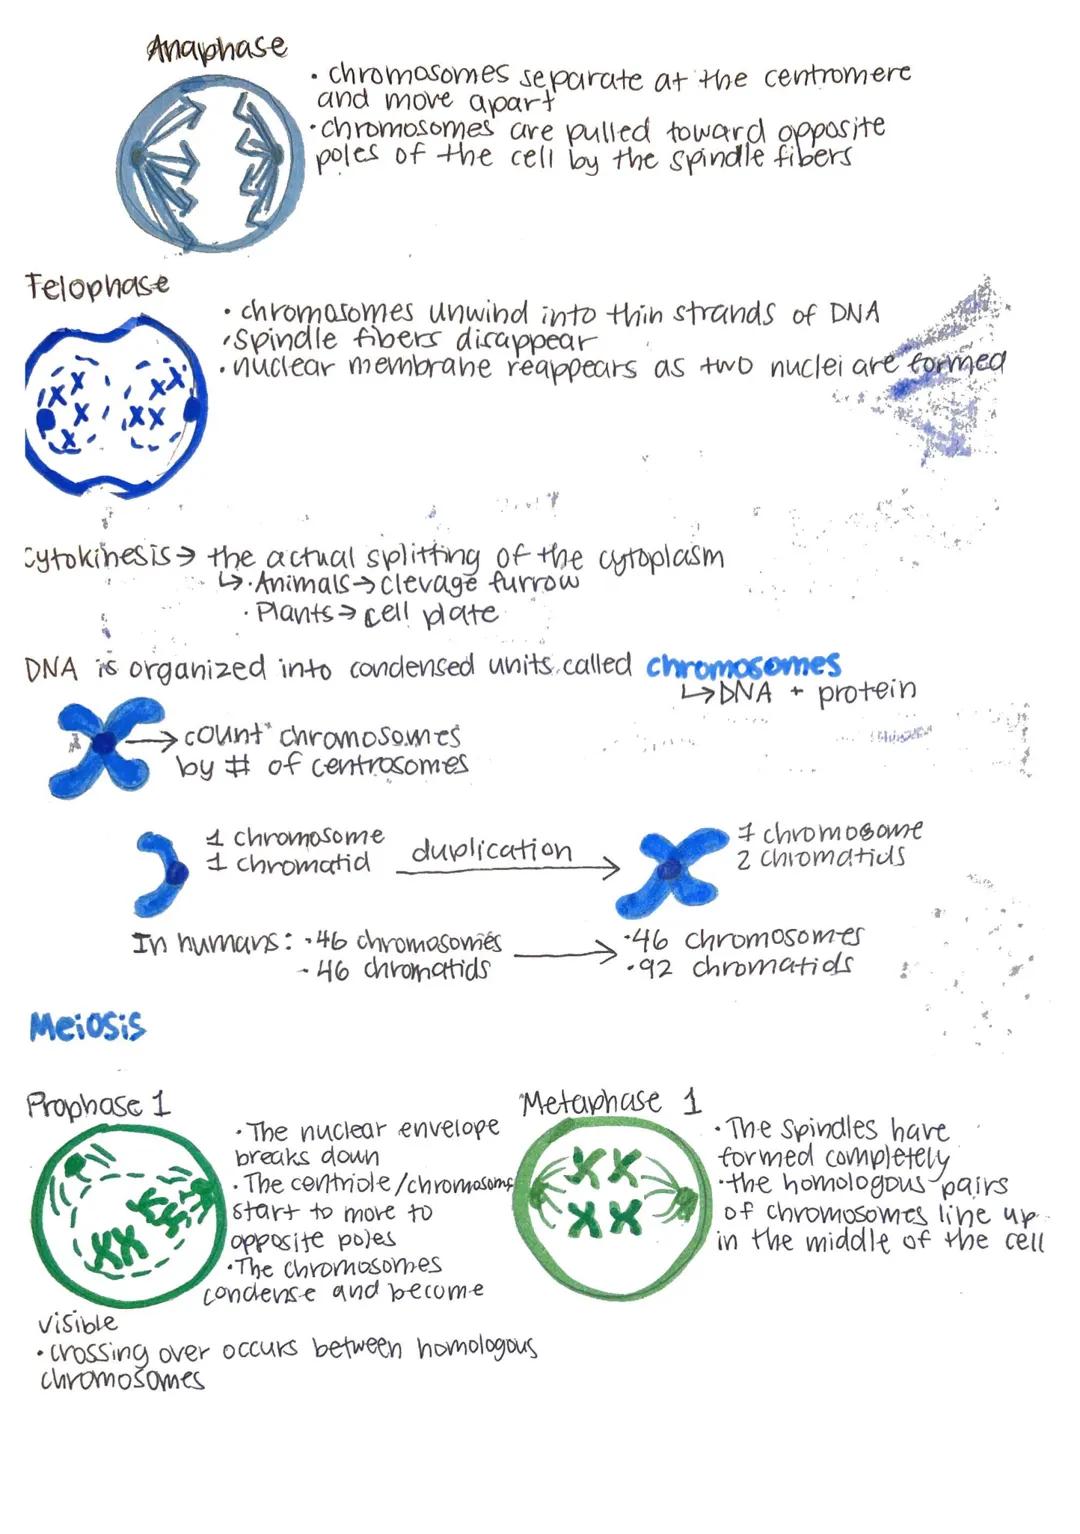 Anaphase
• chromosomes separate at the centromere
and move apart
• chromosomes are pulled toward opposite
poles of the cell by the spindle fibers
Telophase
• chromosomes unwind into thin strands of DNA
• Spindle fibers disappear
• nuclear membrane reappears as two nuclei are formed
cytokinesis → the actual splitting of the cytoplasm
↳ • Animals → clevage furrow
• Plants → cell plate
DNA is organized into condensed units called chromosomes
↳ DNA + protein
→ count chromosomes
by # of centrosomes
1 chromosome
1 chromatid
duplication
1 chromosome
2 chromatids
In humans: • 46 chromosomes
- 46 chromatids
• 46 chromosomes
• 92 chromatids
Meiosis
Prophase 1
• The nuclear envelope
breaks down
• The centriole/chromosoms
start to more to
opposite poles
• The chromosomes
condense and become
visible
• crossing over occurs between homologous
chromosomes
Metaphase 1
• The spindles have
formed completely
• the homologous pairs
of chromosomes line up
in the middle of the cell